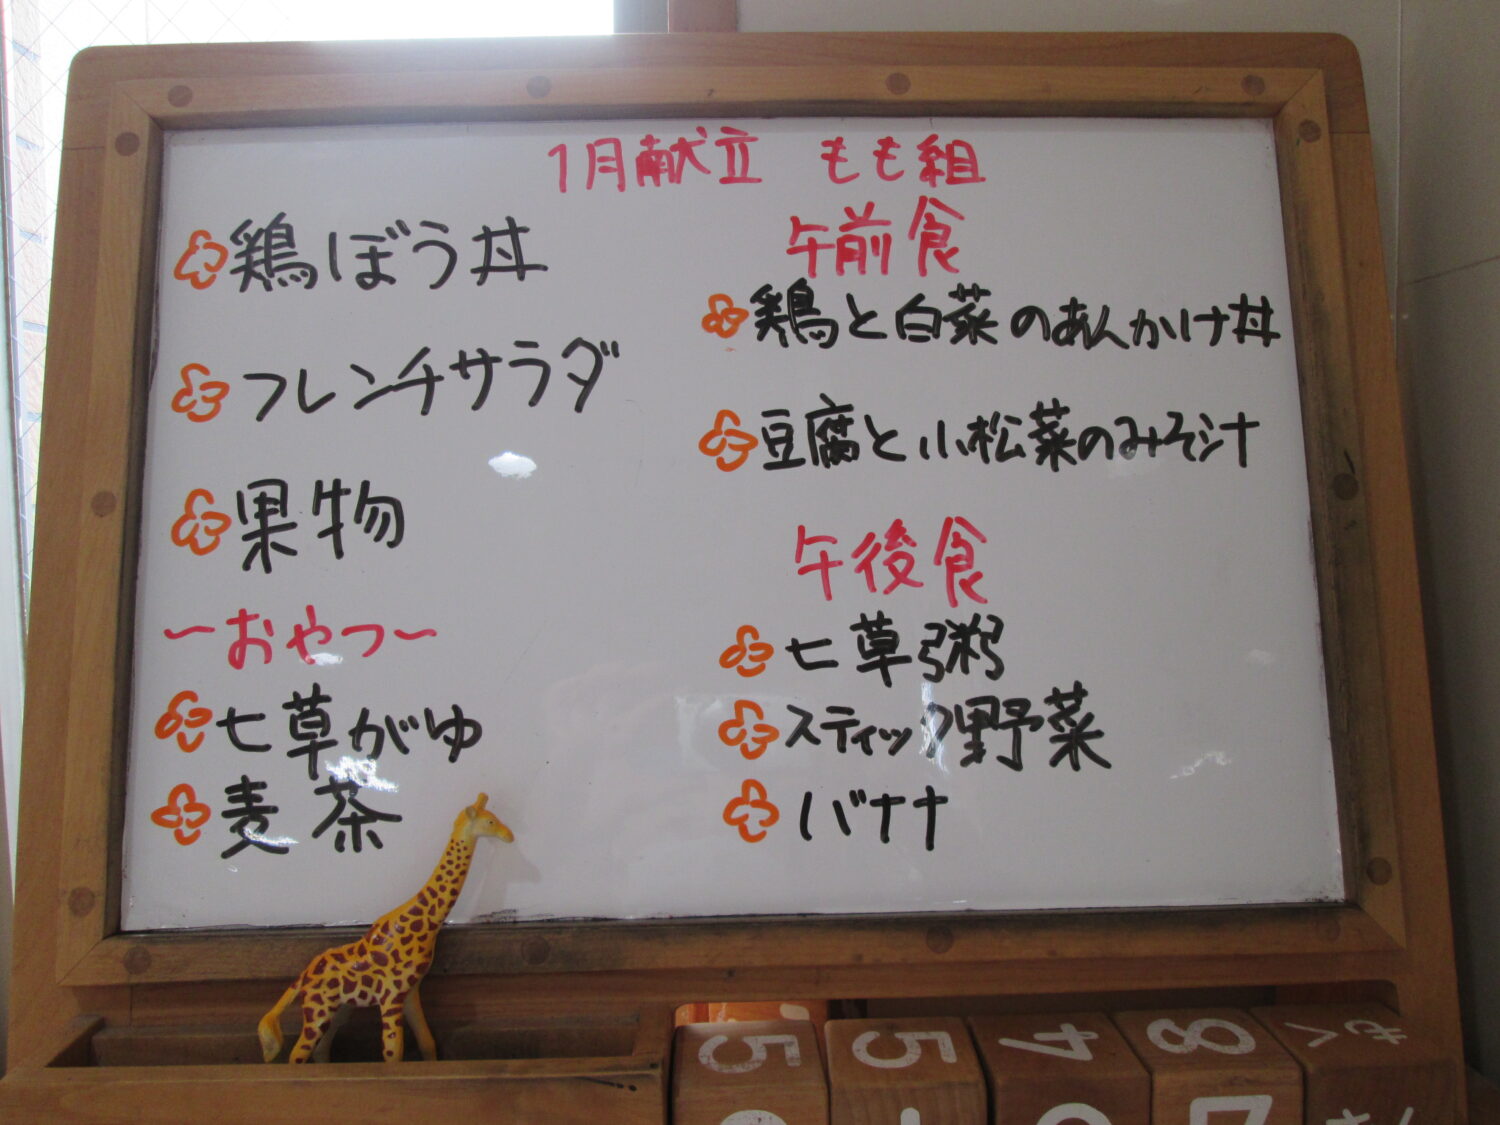 1月献立 もも組
鶏ごぼう丼
フレンチサラダ
果物
〜おやつ〜
七草がゆ
麦茶
午前食
鶏と白菜のあんかけ丼
豆腐と小松菜のみそ汁
午後食
七草粥
スティック野菜
バナナ
5
5
4
8